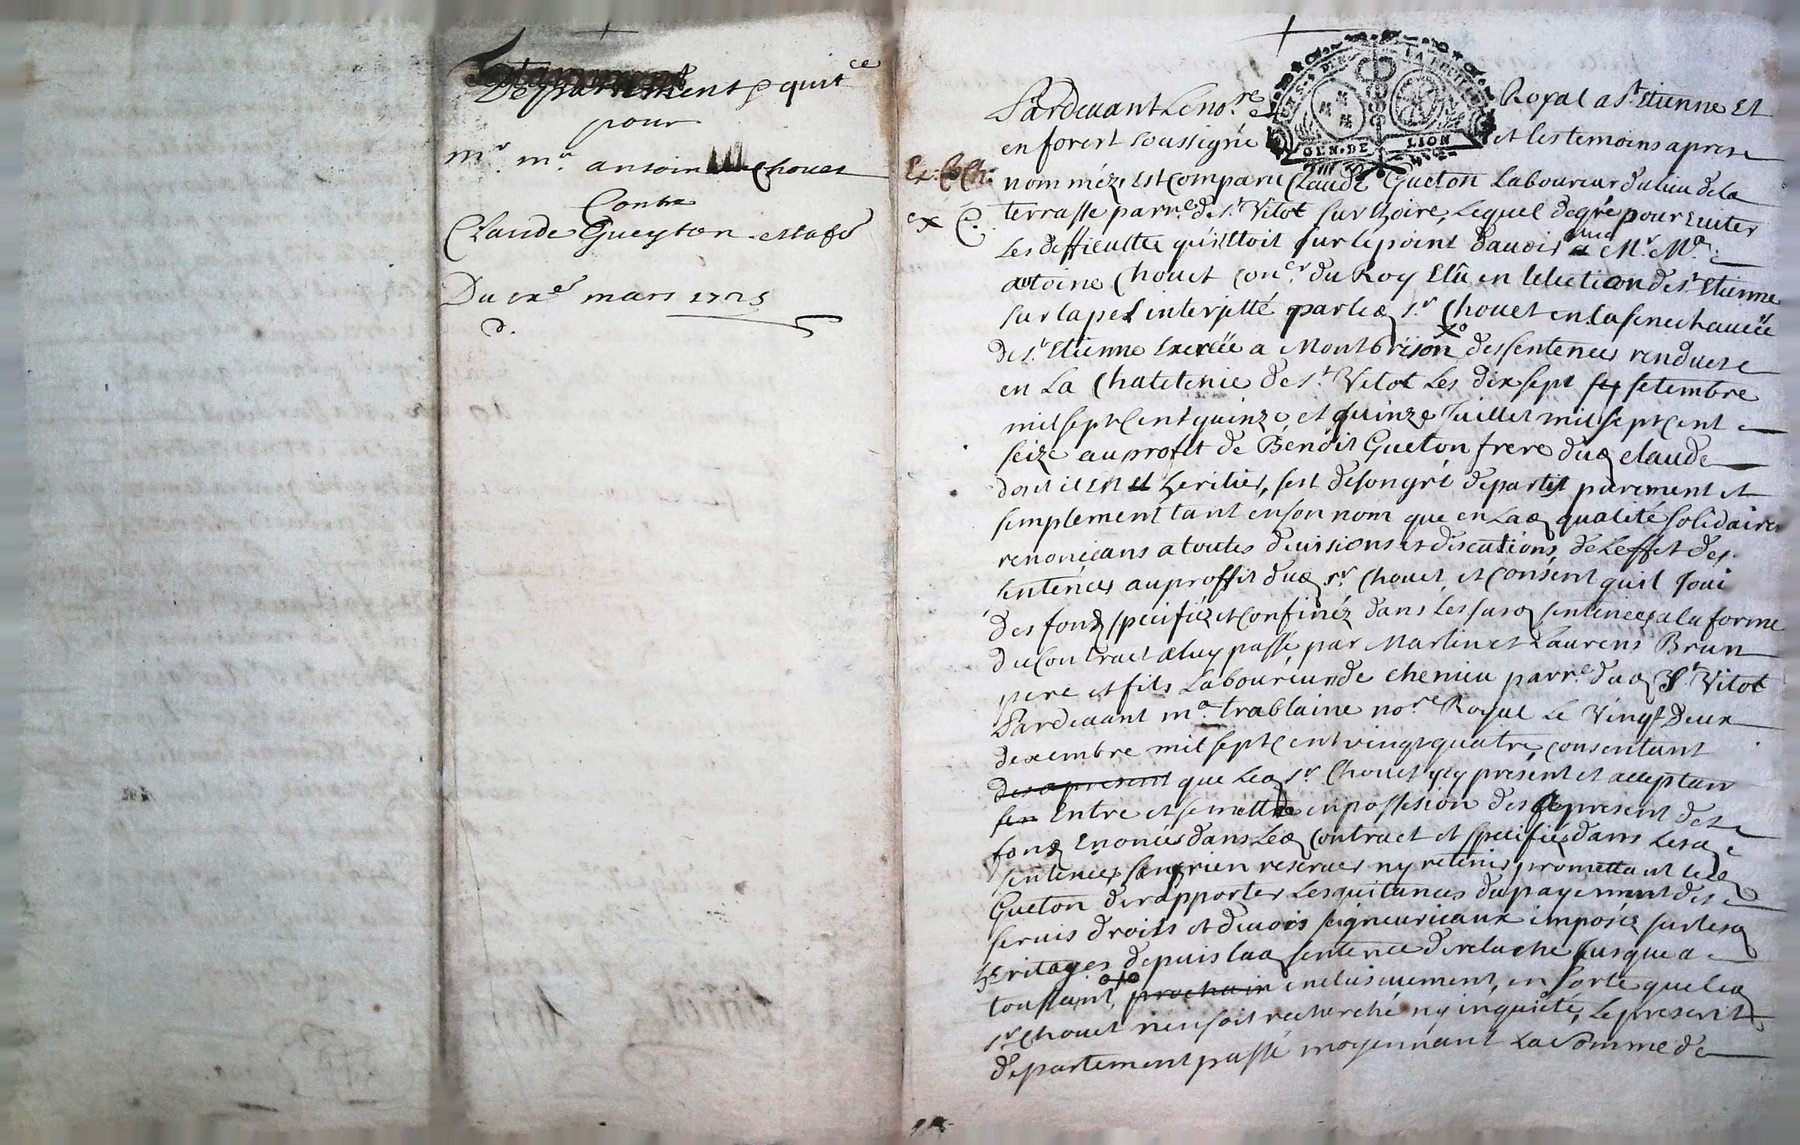 Departement & quit.ce
pour
mr. me. antoine Chouet
Contre
Claude Gueyton
Du ixe mars 1725
d.
Pardeuant Le no.re Royal a st. Etienne Et
GEN. DE LION
en forest soussigné et les temoins apres
nomméz, Est Comparu Claude Gueton Laboureur du lieu de la
terrasse parr.e de st. Vitot sur Loire, Lequel de gré pour Euiter
Les difficulté qu'il Etoit sur le point d'auoir auec Mr. Me.
antoine Chouet Con.er du Roy Elû en lelection de st. Etienne
sur lapel interjetté par led sr. Chouet en la senechaucée
de st. Etienne Exercée a Montbrison des sentences rendues
en La Chatelenie de st. Vitot Les dix sept setembre
mil sept Cent quinze et quinze Juillet mil sept Cent
seize au profit de Benoit Gueton frere dud claude
dont il Est heritier, sest de son gré departit purement et
simplement tant en son nom que en Lad qualité solidaire
renoncans a toutes diuisions et discutions, de Leffet des
sentences au proffit dud sr. Chouet, et Consent quil Joui
des fond specifiéz et Confinéz dans Les susd sentences a la forme
du Contract a luy passé, par Martin et Laurens Brun
pere et fils Laboureurs de chemieu parr.e dud St. Vitot
Pardeuant me. trablaine no.re Royal Le Vingt Deux
dexembre mil sept Cent vingt quatre, Consentant
des a present que Led sr. Chouet icy présent et acceptant
Entre et se mette en possesion des apresent des
fond Enoncés dans Led Contract et specifiés dans Lesd
sentences sans rien reseruer ny retenir, promettant led
Gueton de rapporter Les quitances du payement des
seruis droits et deuoirs seigneuricaux imposéz sur lesd
heritages depuis lad sentence de relache jusque a
toussaint, prochain inclusiuement, en sorte que led
sr. Chouet n'en soit recherché ny inquieté, Le present
departement passé moyennant La somme de